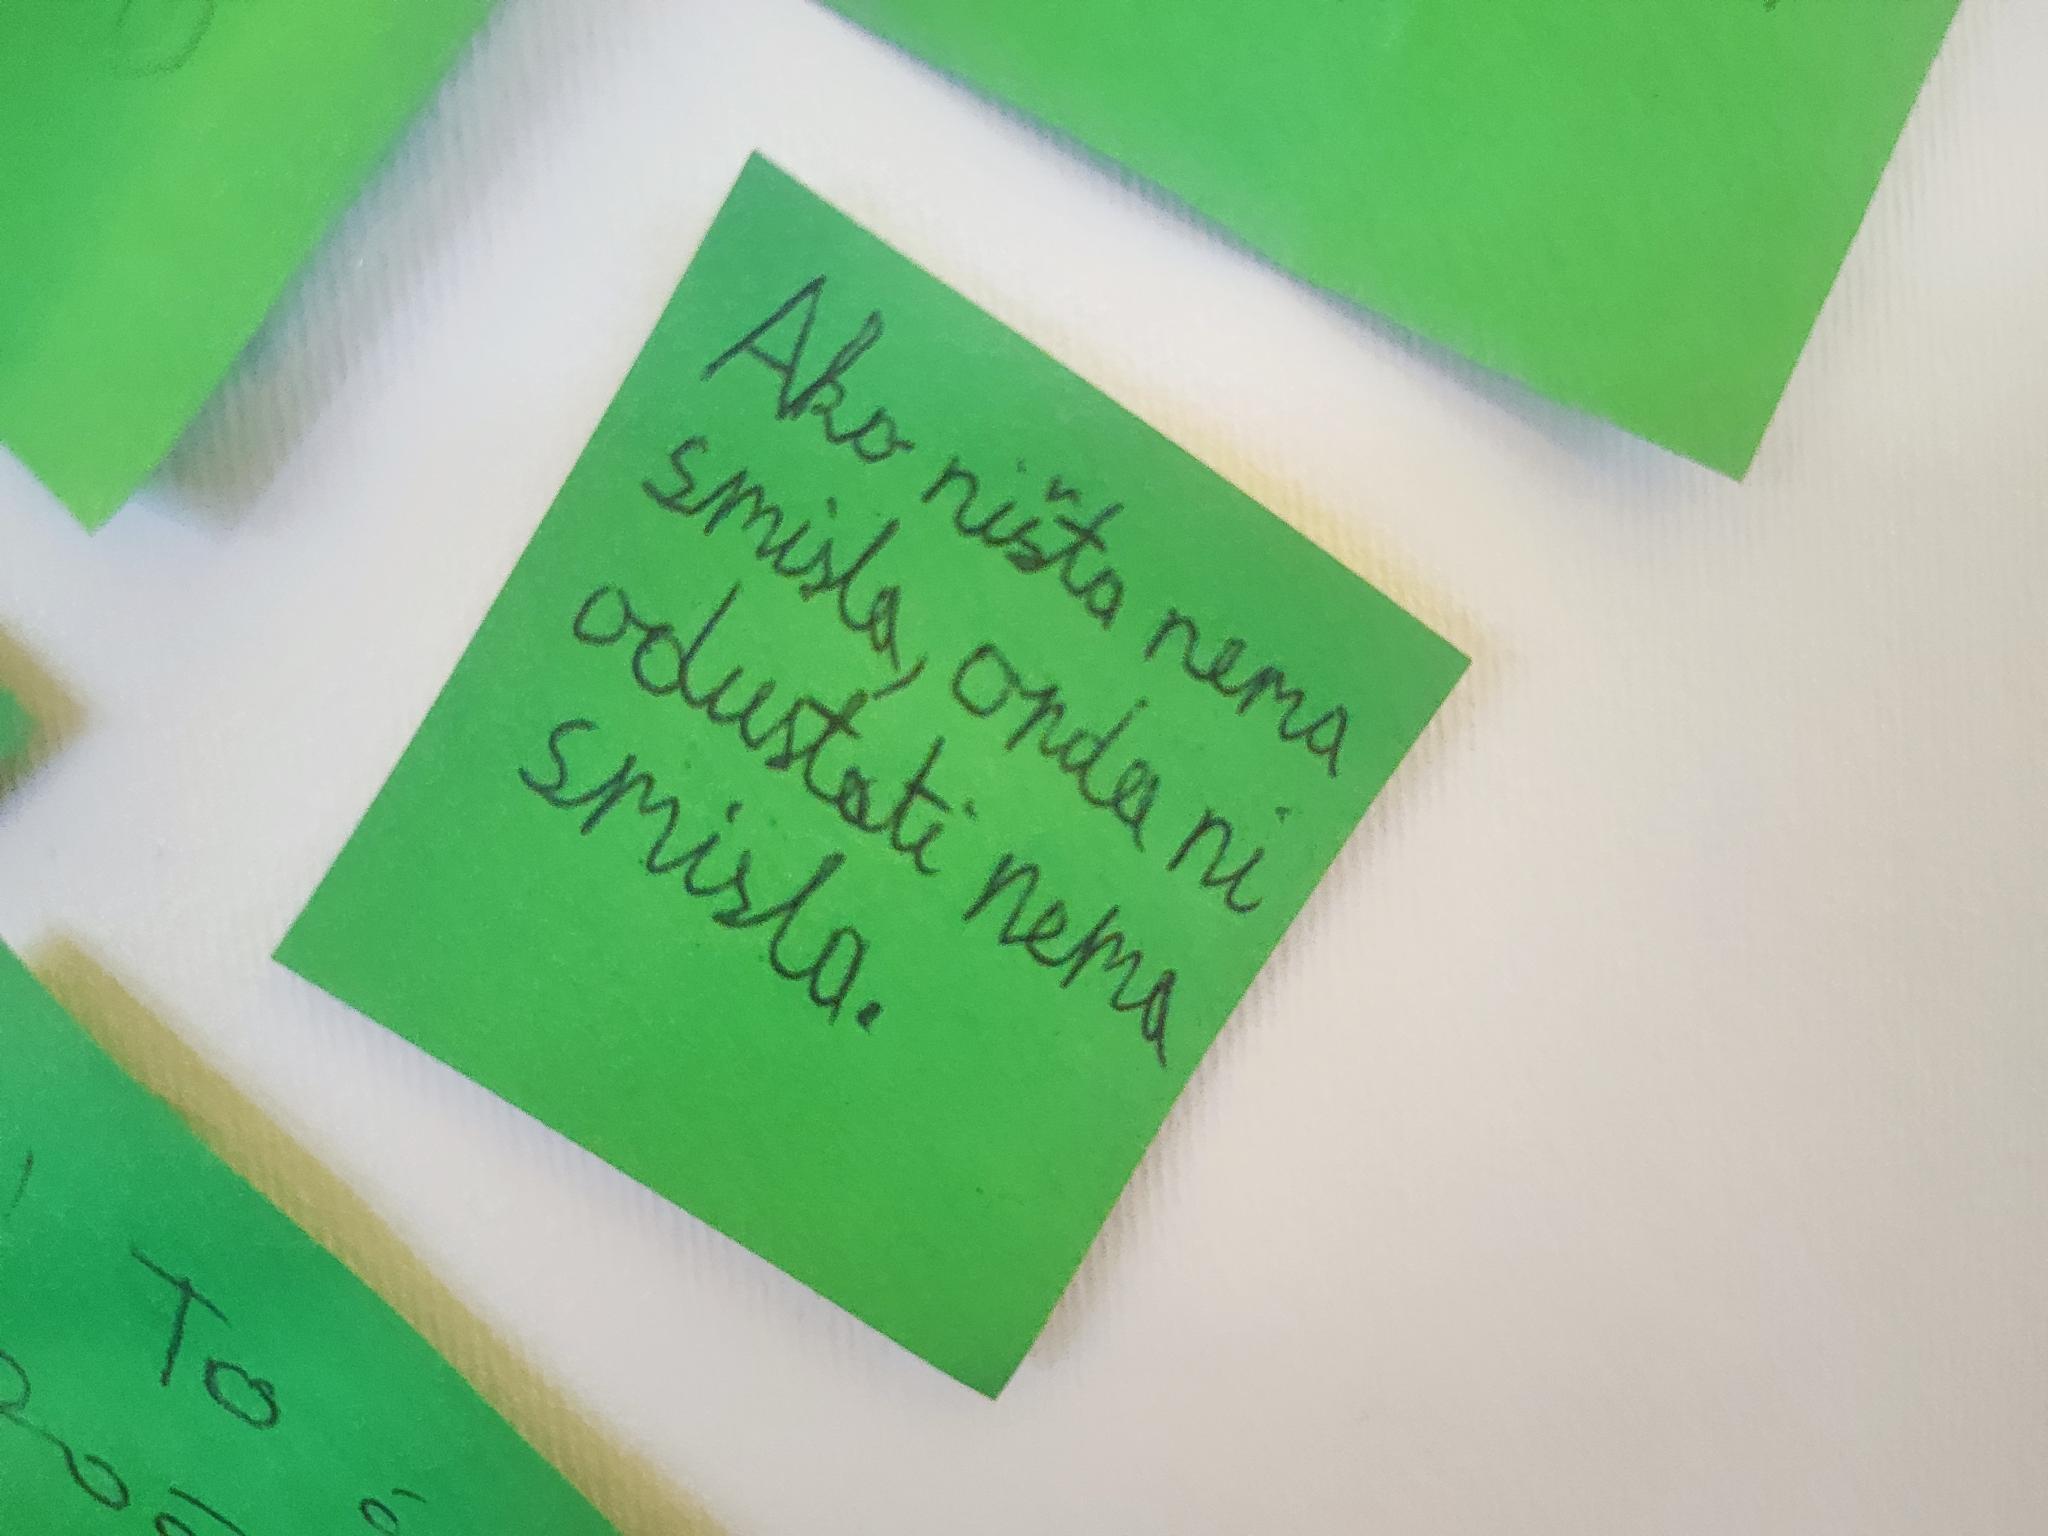 Ako ništa nema
smisla, onda ni
odustati nema
smisla.
To